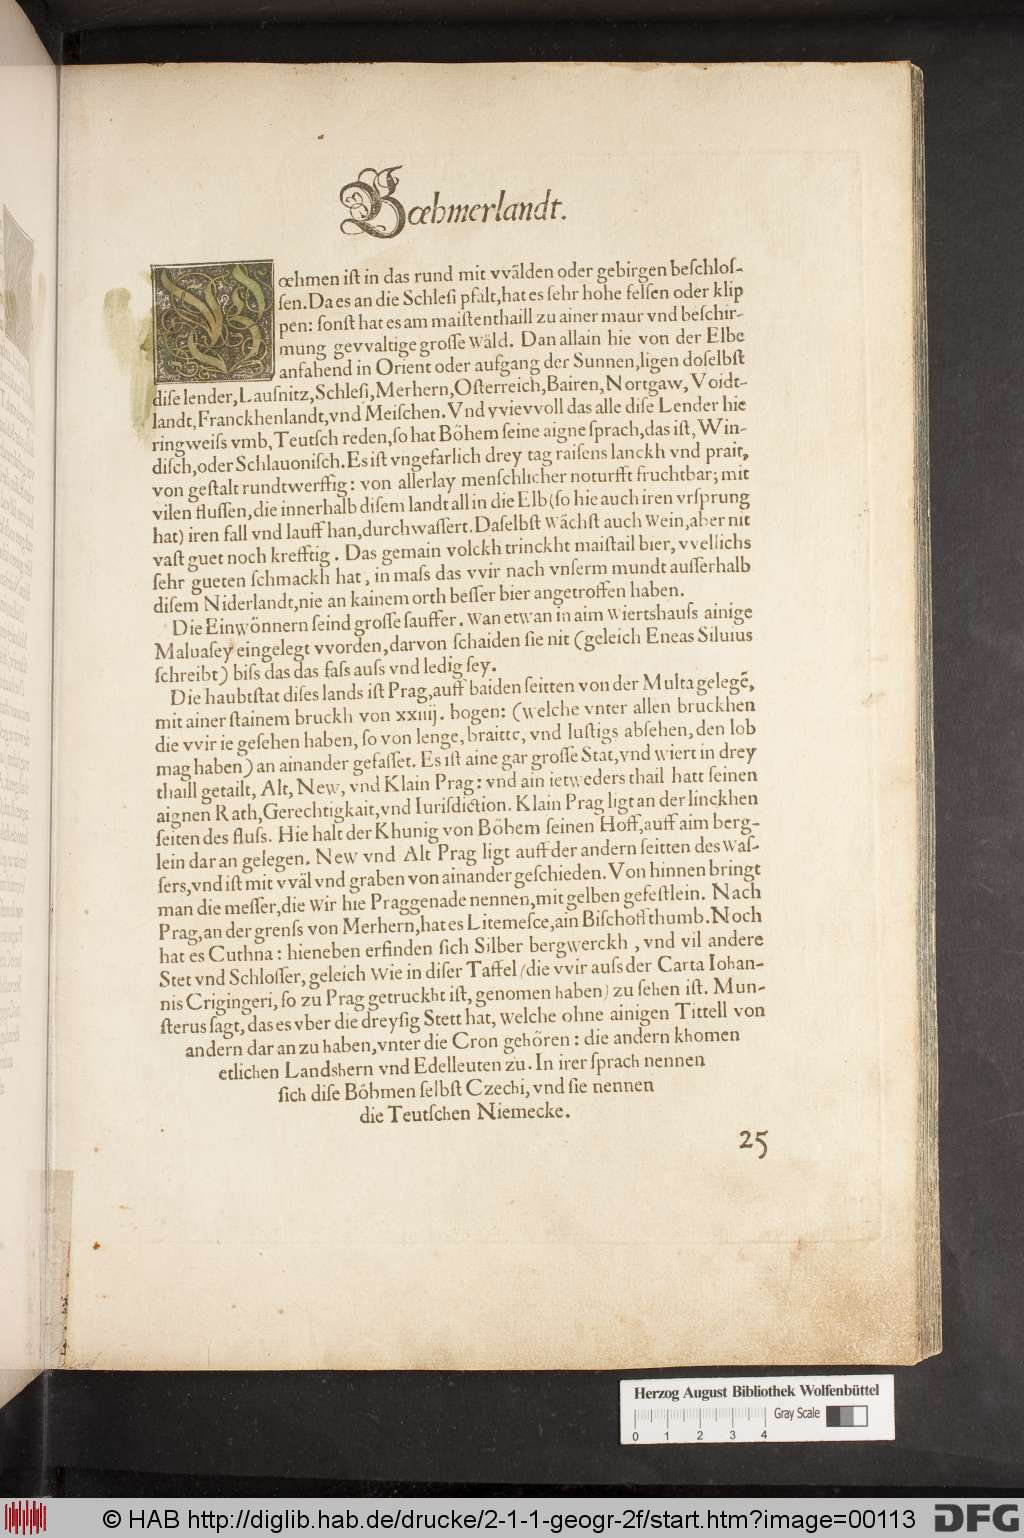 Bœhmerlandt.
Bœhmen iſt in das rund mit vvälden oder gebirgen beſchloſ-
ſen. Da es an die Schleſi pfält, hat es ſehr hohe felſen oder klip
pen: ſonſt hat es am maiſtenthaill zu ainer maur vnd beſchir-
mung gevvaltige groſſe Wäld. Dan allain hie von der Elbe
anfahend in Orient oder aufgang der Sunnen, ligen doſelbſt
diſe lender, Lauſnitz, Schleſi, Merhern, Oſterreich, Bairen, Nortgaw, Voidt-
landt, Franckhenlandt, vnd Meiſchen. Vnd vvievvoll das alle diſe Lender hie
ringweiſs vmb, Teutſch reden, ſo hat Böhem ſeine aigne ſprach, das iſt, Win-
diſch, oder Schlauoniſch. Es iſt vngefarlich drey tag raiſens lanckh vnd prait,
von geſtalt rundtwerffig: von allerlay menſchlicher noturfft fruchtbar; mit
vilen fluſſen, die innerhalb diſem landt all in die Elb (ſo hie auch iren vrſprung
hat) iren fall vnd lauff han, durchwaſſert. Daſelbſt Wächſt auch Wein, aber nit
vaſt guet noch krefftig. Das gemain volckh trinckht maiſtail bier, vvellichs
ſehr gueten ſchmackh hat, in maſs das vvir nach vnſerm mundt auſſerhalb
diſem Niderlandt, nie an kainem orth beſſer bier angetroffen haben.
Die Einwönnern ſeind groſſe ſauffer. Wan etwan in aim Wiertshauſs ainige
Maluaſey eingelegt vvorden, darvon ſchaiden ſie nit (geleich Eneas Siluius
ſchreibt) biſs das das faſs auſs vnd ledig ſey.
Die haubtſtat diſes lands iſt Prag, auff baiden ſeitten von der Multa gelegē,
mit ainer ſtainem bruckh von xxiiij. bogen: (welche vnter allen bruckhen
die vvir ie geſehen haben, ſo von lenge, braitte, vnd luſtigs abſehen, den lob
mag haben) an ainander gefaſſet. Es iſt aine gar groſſe Stat, vnd wiert in drey
thaill getailt, Alt, New, vnd Klain Prag: vnd ain ietweders thail hatt ſeinen
aignen Rath, Gerechtigkait, vnd Iuriſdiction. Klain Prag ligt an der linckhen
ſeiten des fluſs. Hie halt der Khunig von Böhem ſeinen Hoff, auff aim berg-
lein dar an gelegen. New vnd Alt Prag ligt auff der andern ſeitten des Waſ-
ſers, vnd iſt mit vväl vnd graben von ainander geſchieden. Von hinnen bringt
man die meſſer, die Wir hie Praggenade nennen, mit gelben gefeſtlein. Nach
Prag, an der grenſs von Merhern, hat es Litemeſce, ain Biſchoffthumb. Noch
hat es Cuthna: hieneben erfinden ſich Silber bergwerckh, vnd vil andere
Stet vnd Schloſſer, geleich Wie in diſer Taffel (die vvir auſs der Carta Iohan-
nis Crigingeri, ſo zu Prag getruckht iſt, genomen haben) zu ſehen iſt. Mun-
ſterus ſagt, das es vber die dreyſig Stett hat, welche ohne ainigen Tittell von
andern dar an zu haben, vnter die Cron gehören: die andern khomen
etlichen Landshern vnd Edelleuten zu. In irer ſprach nennen
ſich diſe Böhmen ſelbſt Czechi, vnd ſie nennen
die Teutſchen Niemecke.
25
Herzog August Bibliothek Wolfenbüttel
Gray Scale
0 1 2 3 4
© HAB http://diglib.hab.de/drucke/2-1-1-geogr-2f/start.htm?image=00113
DFG